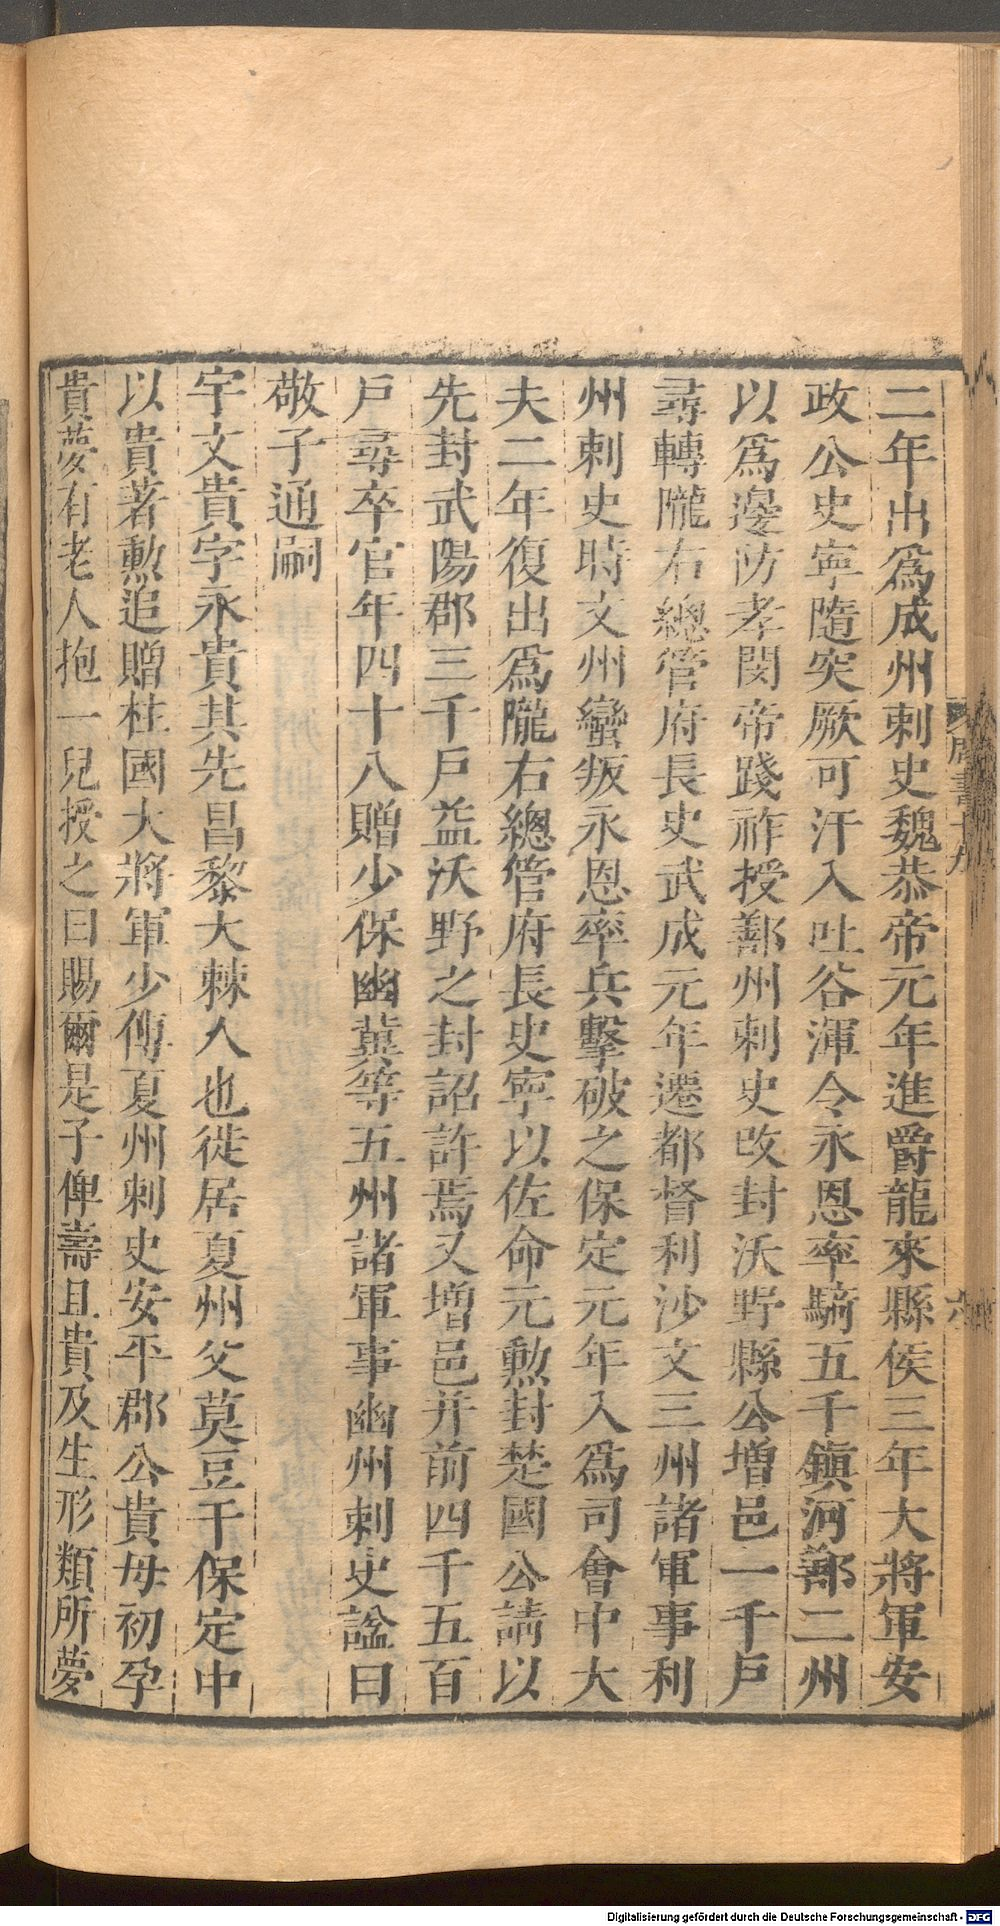 二年出爲成州刺史魏恭帝元年進爵龍來縣侯三年大將軍安
政公史寧隨突厥可汗入吐谷渾令永恩率騎五千鎮河鄯二州
以爲邊防孝閔帝踐祚授鄯州刺史改封沃野縣公增邑一千戶
尋轉隴右總管府長史武成元年遷都督利沙文三州諸軍事利
州刺史時文州蠻叛永恩率兵擊破之保定元年入爲司會中大
夫二年復出爲隴右總管府長史寧以佐命元勲封楚國公請以
先封武陽郡三千戶益沃野之封詔許焉又增邑并前四千五百
戶尋卒官年四十八贈少保幽冀等五州諸軍事幽州刺史諡曰
敬子通嗣
宇文貴字永貴其先昌黎大棘人也徙居夏州父莫豆干保定中
以貴著勲追贈柱國大將軍少傅夏州刺史安平郡公貴母初孕
貴夢有老人抱一兒授之曰賜爾是子俾壽且貴及生形類所夢
周書十九
六
Digitalisierung gefördert durch die Deutsche Forschungsgemeinschaft - DFG